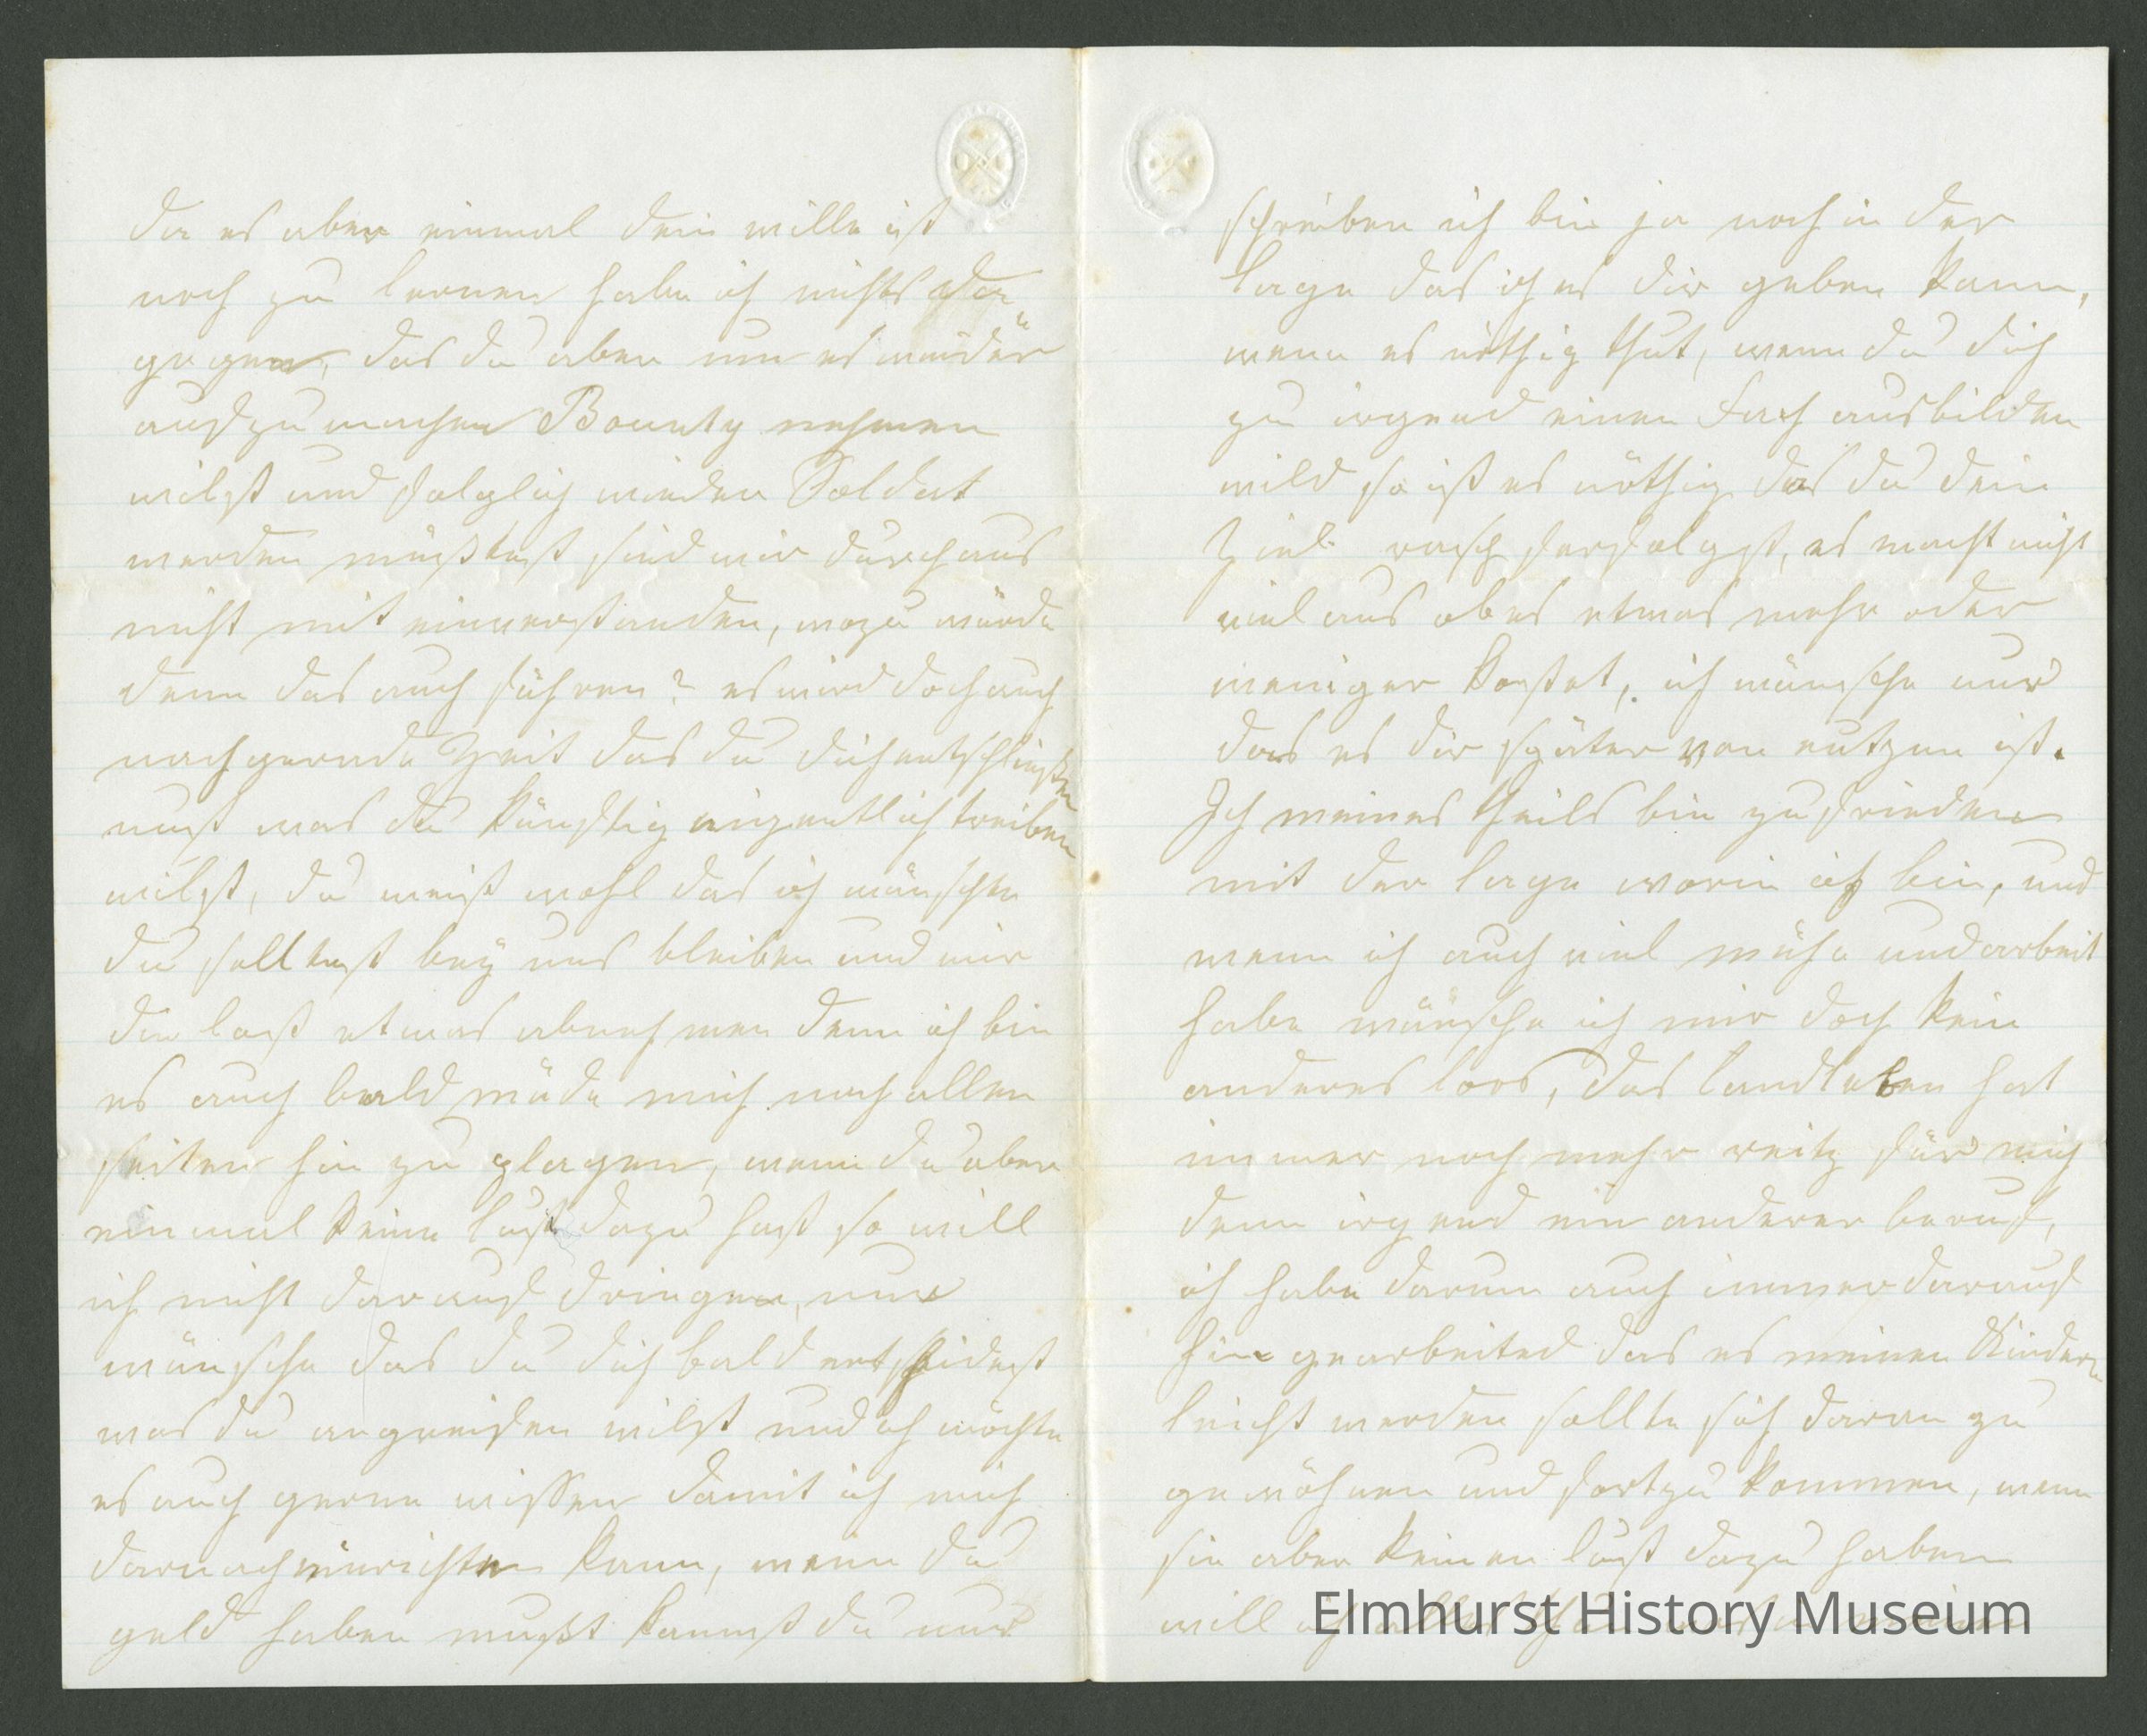 da es aber einmal dein wille ist
noch zu lernen habe ich nichts da
gegen, das du aber um es wieder
aufzumachen Bounty nehmen
wilst und folglich wieder Soldat
werden müßtest sind wir durchaus
nicht mit einverstanden, wozu würde
denn das auch führen? es wird doch auch
nachgerade Zeit das du dich entschließen
must was du künftig eigentlich treiben
wilst, du weist wohl das ich wünschte
du solltest bey uns bleiben und mir
die last etwas abnehmen denn ich bin
es auch bald müde mich nach allen
seiten hin zu plagen, wenn du aber
einmal keine lust dazu hast so will
ich nicht darauf dringen, nur
wünsche das du dich bald entscheidest
was du angreifen wilst und ich möchte
es auch gerne wissen damit ich mich
darnach einrichten kann, wenn du
geld haben mußt kannst du nur
schreiben ich bin ja noch in der
lage das ich es dir geben kann,
wenn es nöthig thut, wenn du dich
zu irgend einen Fach ausbilden
wild so ist es nöthig das du dein
Ziel rasch verfolgst, es macht nicht
viel aus ob es etwas mehr oder
weniger kostet, ich wünsche nur
das es dir später von nutzen ist.
Ich meines theils bin zufrieden
mit der lage worin ich bin, und
wenn ich auch viel mühe und arbeit
habe wünsche ich mir doch kein
anderes loos, das landleben hat
immer noch mehr reitz für mich
denn irgend ein anderer beruf,
ich habe darum auch immer darauf
hin gearbeited das es meinen Kindern
leicht werden sollte sich daran zu
gewöhnen und fortzukommen, wenn
sie aber keinen lust dazu haben
will ich alles
Elmhurst History Museum